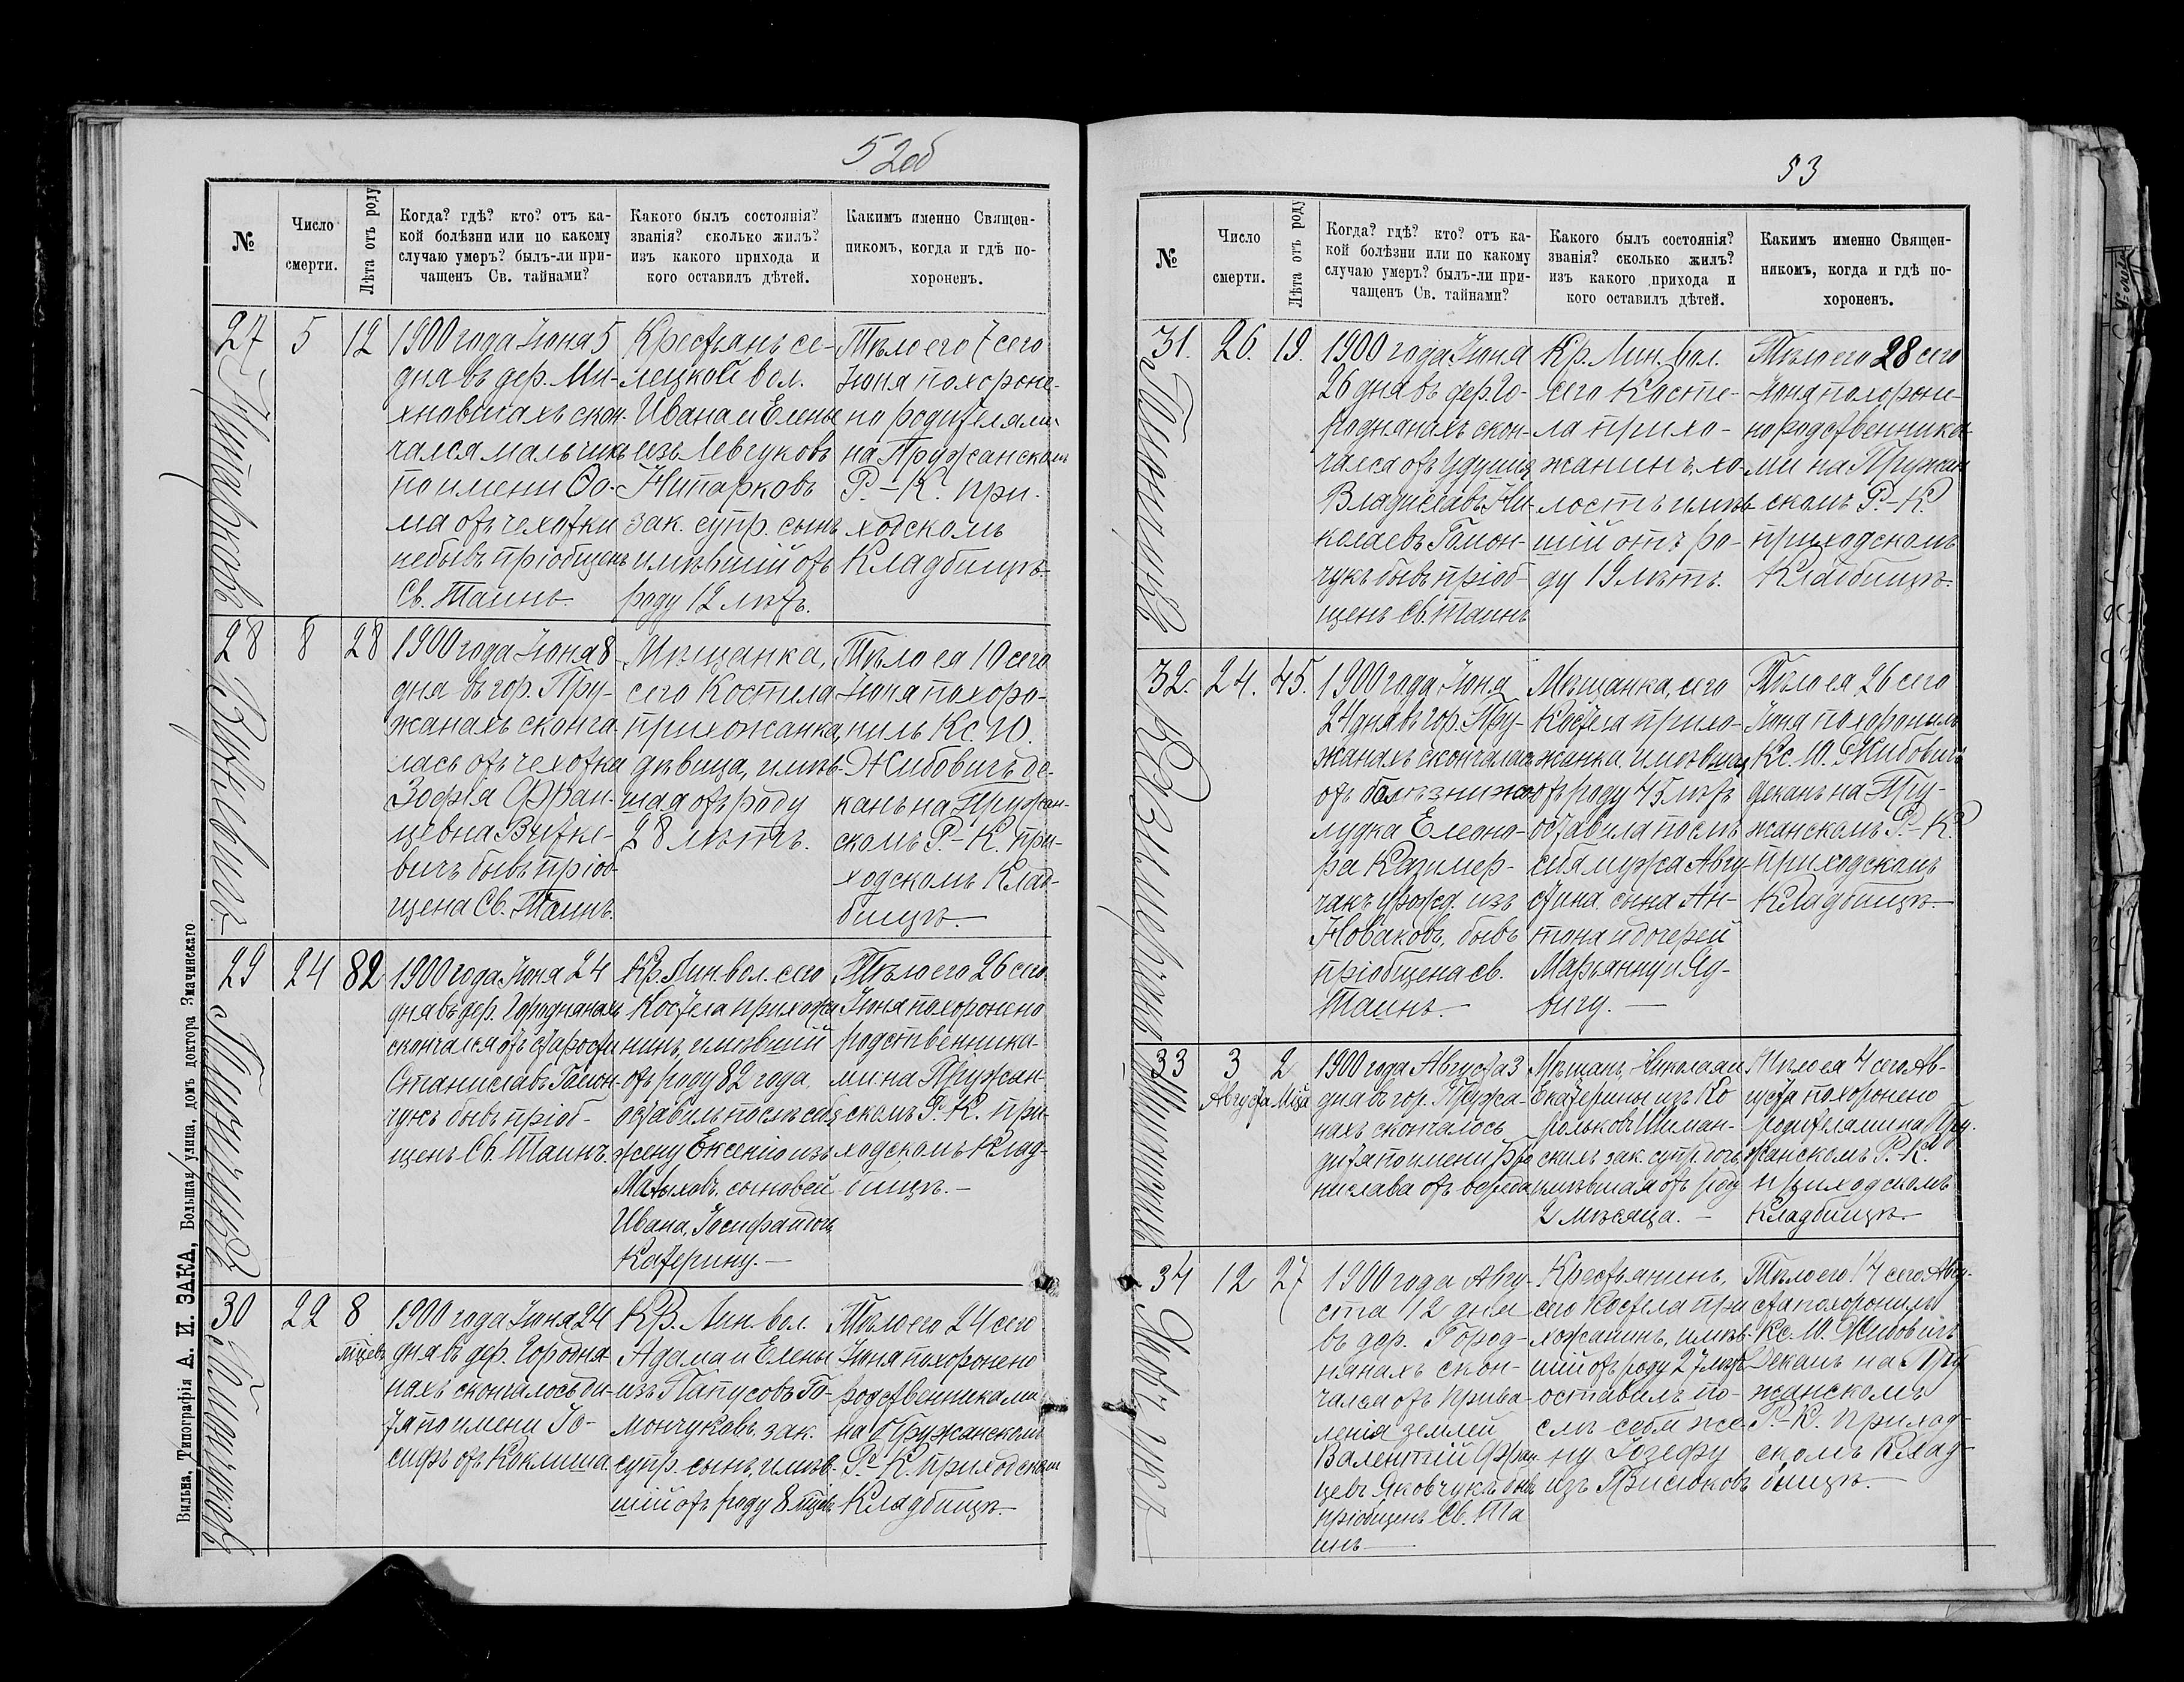 52об
№
Число
смерти.
Лѣта отъ роду
Когда? гдѣ? кто? отъ ка-
кой болѣзни или по какому
случаю умеръ? былъ-ли при-
чащенъ Св. тайнами?
Какого былъ состоянія?
званія? сколько жилъ?
изъ какого прихода и
кого оставилъ дѣтей.
Какимъ именно Священ-
никомъ, когда и гдѣ по-
хороненъ.
27
5
12
1900 года Іюня 5
дня въ дер. Ми-
хновичахъ скон-
чался мальчикъ
по имени Ѳо-
ма отъ чехотки
небывъ пріобщенъ
Св. Таинъ.
Крестьянъ се-
лецкой вол.
Ивана и Елены
изъ Левчуковъ
зак. супр. сынъ
имѣвшій отъ
роду 12 лѣтъ.
Тѣло его 7 сего
Іюня похороне-
но родителями
на Пружанскомъ
Р.-К. при-
ходскомъ
Кладбищѣ.
28
8
28
1900 года Іюня 8
дня въ гор. Пру-
жанахъ сконча
лась отъ чехотки
Зофія Фран-
цевна Витке-
вичъ бывъ пріоб
щена Св. Таинъ.
Мѣщанка,
сего Костела
прихожанка,
дѣвица, имѣв-
шая отъ роду
28 лѣтъ.
Тѣло ея 10 сего
Іюня похоро-
нилъ Кс. Ю.
Жибовичъ де-
канъ на Пружан-
скомъ Р.-К. при-
ходскомъ Клад-
бищѣ.
29
24
82
1900 года Іюня 24
дня въ дер. Городнянахъ
скончался отъ старости
Станиславъ Гамон-
чукъ бывъ пріоб-
щенъ Св. Таинъ.
Кр. Лин. вол. сего
Костела прихожа
нинъ, имѣвшій
отъ роду 82 года,
оставилъ послѣ себя
жену Ексенію изъ
сыновей
Ивана, Іосифа и дочь
Катерину.—
Тѣло его 26 сего
Іюня похоронено
родственника-
ми на Пружан-
скомъ Р.-К. при-
ходскомъ Клад-
бищѣ.—
30
22
8
мѣсяц.
1900 года Іюня 24
дня въ дер. Городня-
нахъ скончалось ди-
тя по имени Іо-
сифъ отъ Коклюша.
Кр. Лин. вол.
Адама и Елены
изъ Папусовъ Га-
мончуковъ зак.
супр. сынъ, имѣв-
шій отъ роду 8 мѣсяц.
Тѣло его 24 сего
Іюня похоронено
родственниками
на Пружанскомъ
Р.-К. приходскомъ
Кладбищѣ.—
Вильна, Типографія А. И. ЗАКА, Большая улица, домъ доктора Змачинскаго.
53
№
Число
смерти.
Лѣта отъ роду
Когда? гдѣ? кто? отъ ка-
кой болѣзни или по какому
случаю умеръ? былъ-ли при-
чащенъ Св. тайнами?
Какого былъ состоянія?
званія? сколько жилъ?
изъ какого прихода и
кого оставилъ дѣтей.
Какимъ именно Священ-
никомъ, когда и гдѣ по-
хороненъ.
31.
Гамончукъ
26.
19.
1900 года Іюня
26 дня въ дер. Го-
роднянахъ скон-
чался отъ удушія
Владиславъ Ни-
колаевъ Гамон-
чукъ бывъ пріоб-
щенъ Св. Таинъ
Кр. Лин. вол.
сего Косте-
ла прихо-
жанинъ, хо-
лостъ имѣв-
шій отъ ро-
ду 19 лѣтъ.
Тѣло его 28 сего
Іюня похороне-
но родственника-
ми на Пружан
скомъ Р.-К.
приходскомъ
Кладбищѣ.
32.
Казимерчакъ
24.
45.
1900 года Іюня
24 дня въ гор. Пру-
жанахъ скончалась
отъ болѣзни же-
лудка Елеоно-
ра Казимер-
чакъ урожд. изъ
Новаковъ, бывъ
пріобщена Св.
Таинъ.—
Мѣщанка, сего
Костела прихо-
жанка имѣвшая
отъ роду 45 лѣтъ
оставила послѣ
себя мужа Авгу-
стина, сына Ан-
тона и дочерей
Марьянну и Яд-
вигу.—
Тѣло ея 26 сего
Іюня похоронилъ
Кс. Ю. Жибовичъ
деканъ на Пру-
жанскомъ Р.-К.
приходскомъ
Кладбищѣ.—
33
3
Августа
2
Мѣсяц.
1900 года Августа 3
дня въ гор. Пружа-
нахъ скончалось
дитя по имени Бро
нислава отъ
Мѣщанъ, Николая и
Екатерины изъ Ко
рольковъ Шиман-
скихъ зак. супр. дочь
имѣвшая отъ роду
2 мѣсяца.—
Тѣло ея 4 сего Ав-
густа похоронено
родителями на Пру-
жанскомъ Р.-К.
приходскомъ
Кладбищѣ.—
34
Яковчукъ
12
27
1900 года Авгу-
ста 12 дня
въ дер. Город-
нянахъ скон-
чался отъ прива-
ленія землей
Валентій Фран
цевъ Яковчукъ бывъ
пріобщенъ Св. Та
инъ—
Крестьянинъ,
сего Костела при
хожанинъ, имѣв-
шій отъ роду 27 лѣтъ
оставилъ по-
слѣ себя же-
ну Іозефу
изъ
Тѣло его 14 сего Авгу-
ста похоронилъ
Кс. Ю. Жибовичъ
Деканъ на Пру
жанскомъ
Р.-К. приход-
скомъ Клад-
бищѣ.—